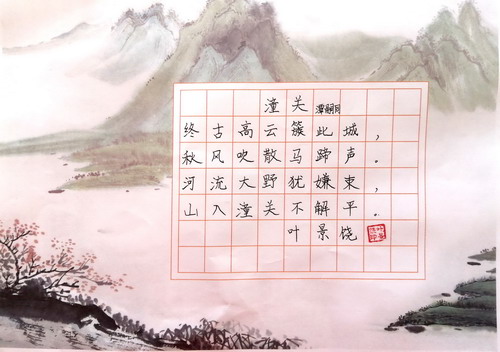 潼关 谭嗣同
终古高云簇此城，
秋风吹散马蹄声。
河流大野犹嫌束，
山入潼关不解平。
叶景饶